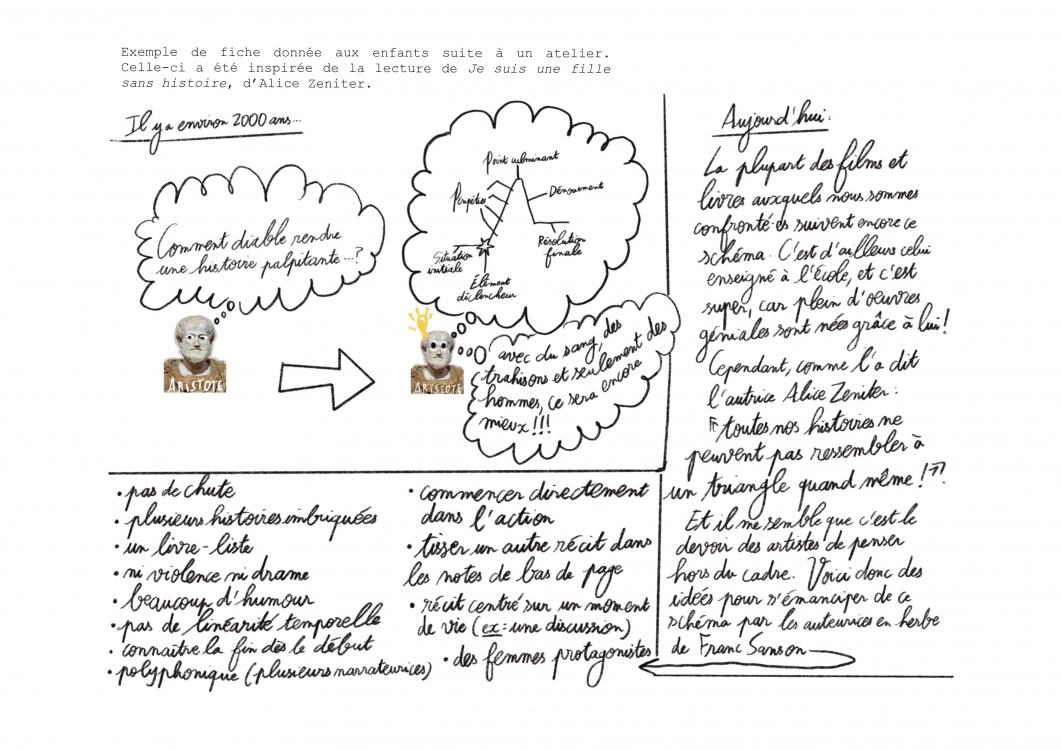 Exemple de fiche donnée aux enfants suite à un atelier.
Celle-ci a été inspirée de la lecture de Je suis une fille
sans histoire, d'Alice Zeniter.
Il y a environ 2000 ans...
Comment diable rendre
une histoire palpitante...?
ARISTOTE
Point culminant
Péripéties
Dénouement
Situation
initiale
Résolution
finale
Élément
déclencheur
ARISTOTE
avec du sang, des
trahisons et seulement des
hommes, ce sera encore
mieux !!!
Aujourd'hui:
La plupart des films et
livres auxquels nous sommes
confronté·es suivent encore ce
schéma. C'est d'ailleurs celui
enseigné à l'école, et c'est
super, car plein d'œuvres
géniales sont nées grâce à lui!
Cependant, comme l'a dit
l'autrice Alice Zeniter:
"toutes nos histoires ne
peuvent pas ressembler à
un triangle quand même!".
Et il me semble que c'est le
devoir des artistes de penser
hors du cadre. Voici donc des
idées pour s'émanciper de ce
schéma par les auteurices en herbe
de Franc Sanson
• pas de chute
• plusieurs histoires imbriquées
• un livre-liste
• ni violence ni drame
• beaucoup d'humour
• pas de linéarité temporelle
• connaître la fin dès le début
• polyphonique (plusieurs narrateurices)
• commencer directement
dans l'action
• tisser un autre récit dans
les notes de bas de page
• récit centré sur un moment
de vie (ex: une discussion)
• des femmes protagonistes